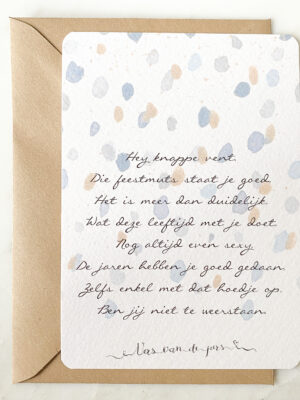 Hey knappe vent.
Die feestmuts staat je goed.
Het is meer dan duidelijk.
Wat deze leeftijd met je doet.
Nog altijd even sexy.
De jaren hebben je goed gedaan.
Zelfs enkel met dat hoedje op.
Ben jij niet te weerstaan.
Vers van de pers